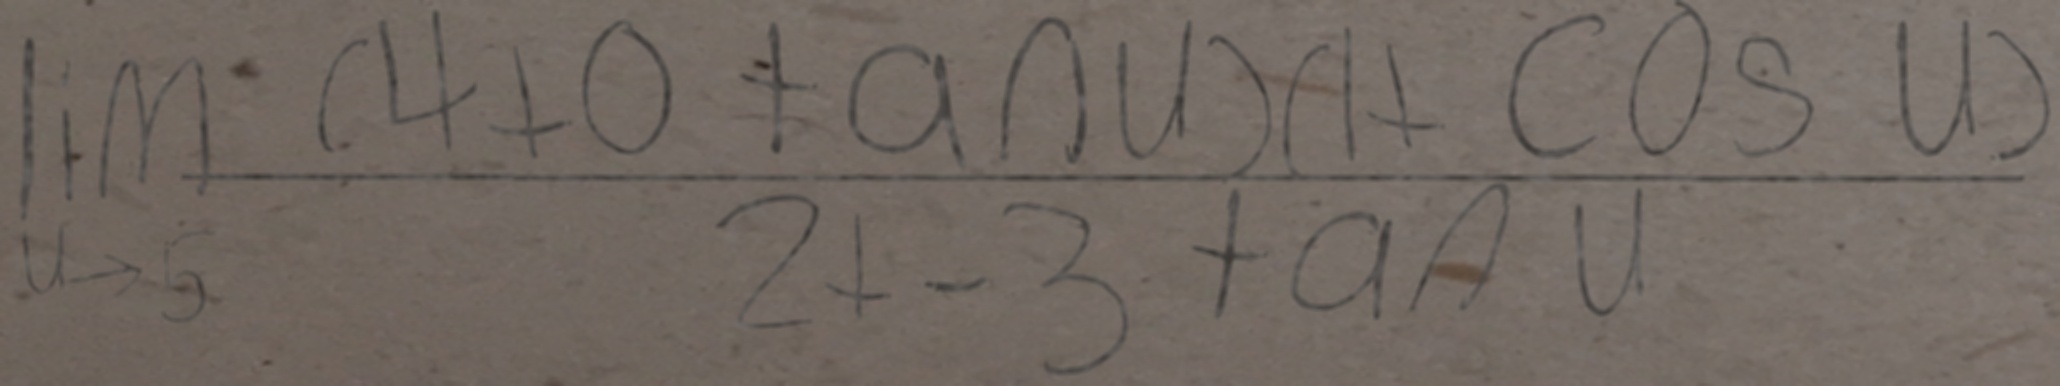 lim (4+0 tan u)(1+ cos u)
u→5 2+-3 tan u